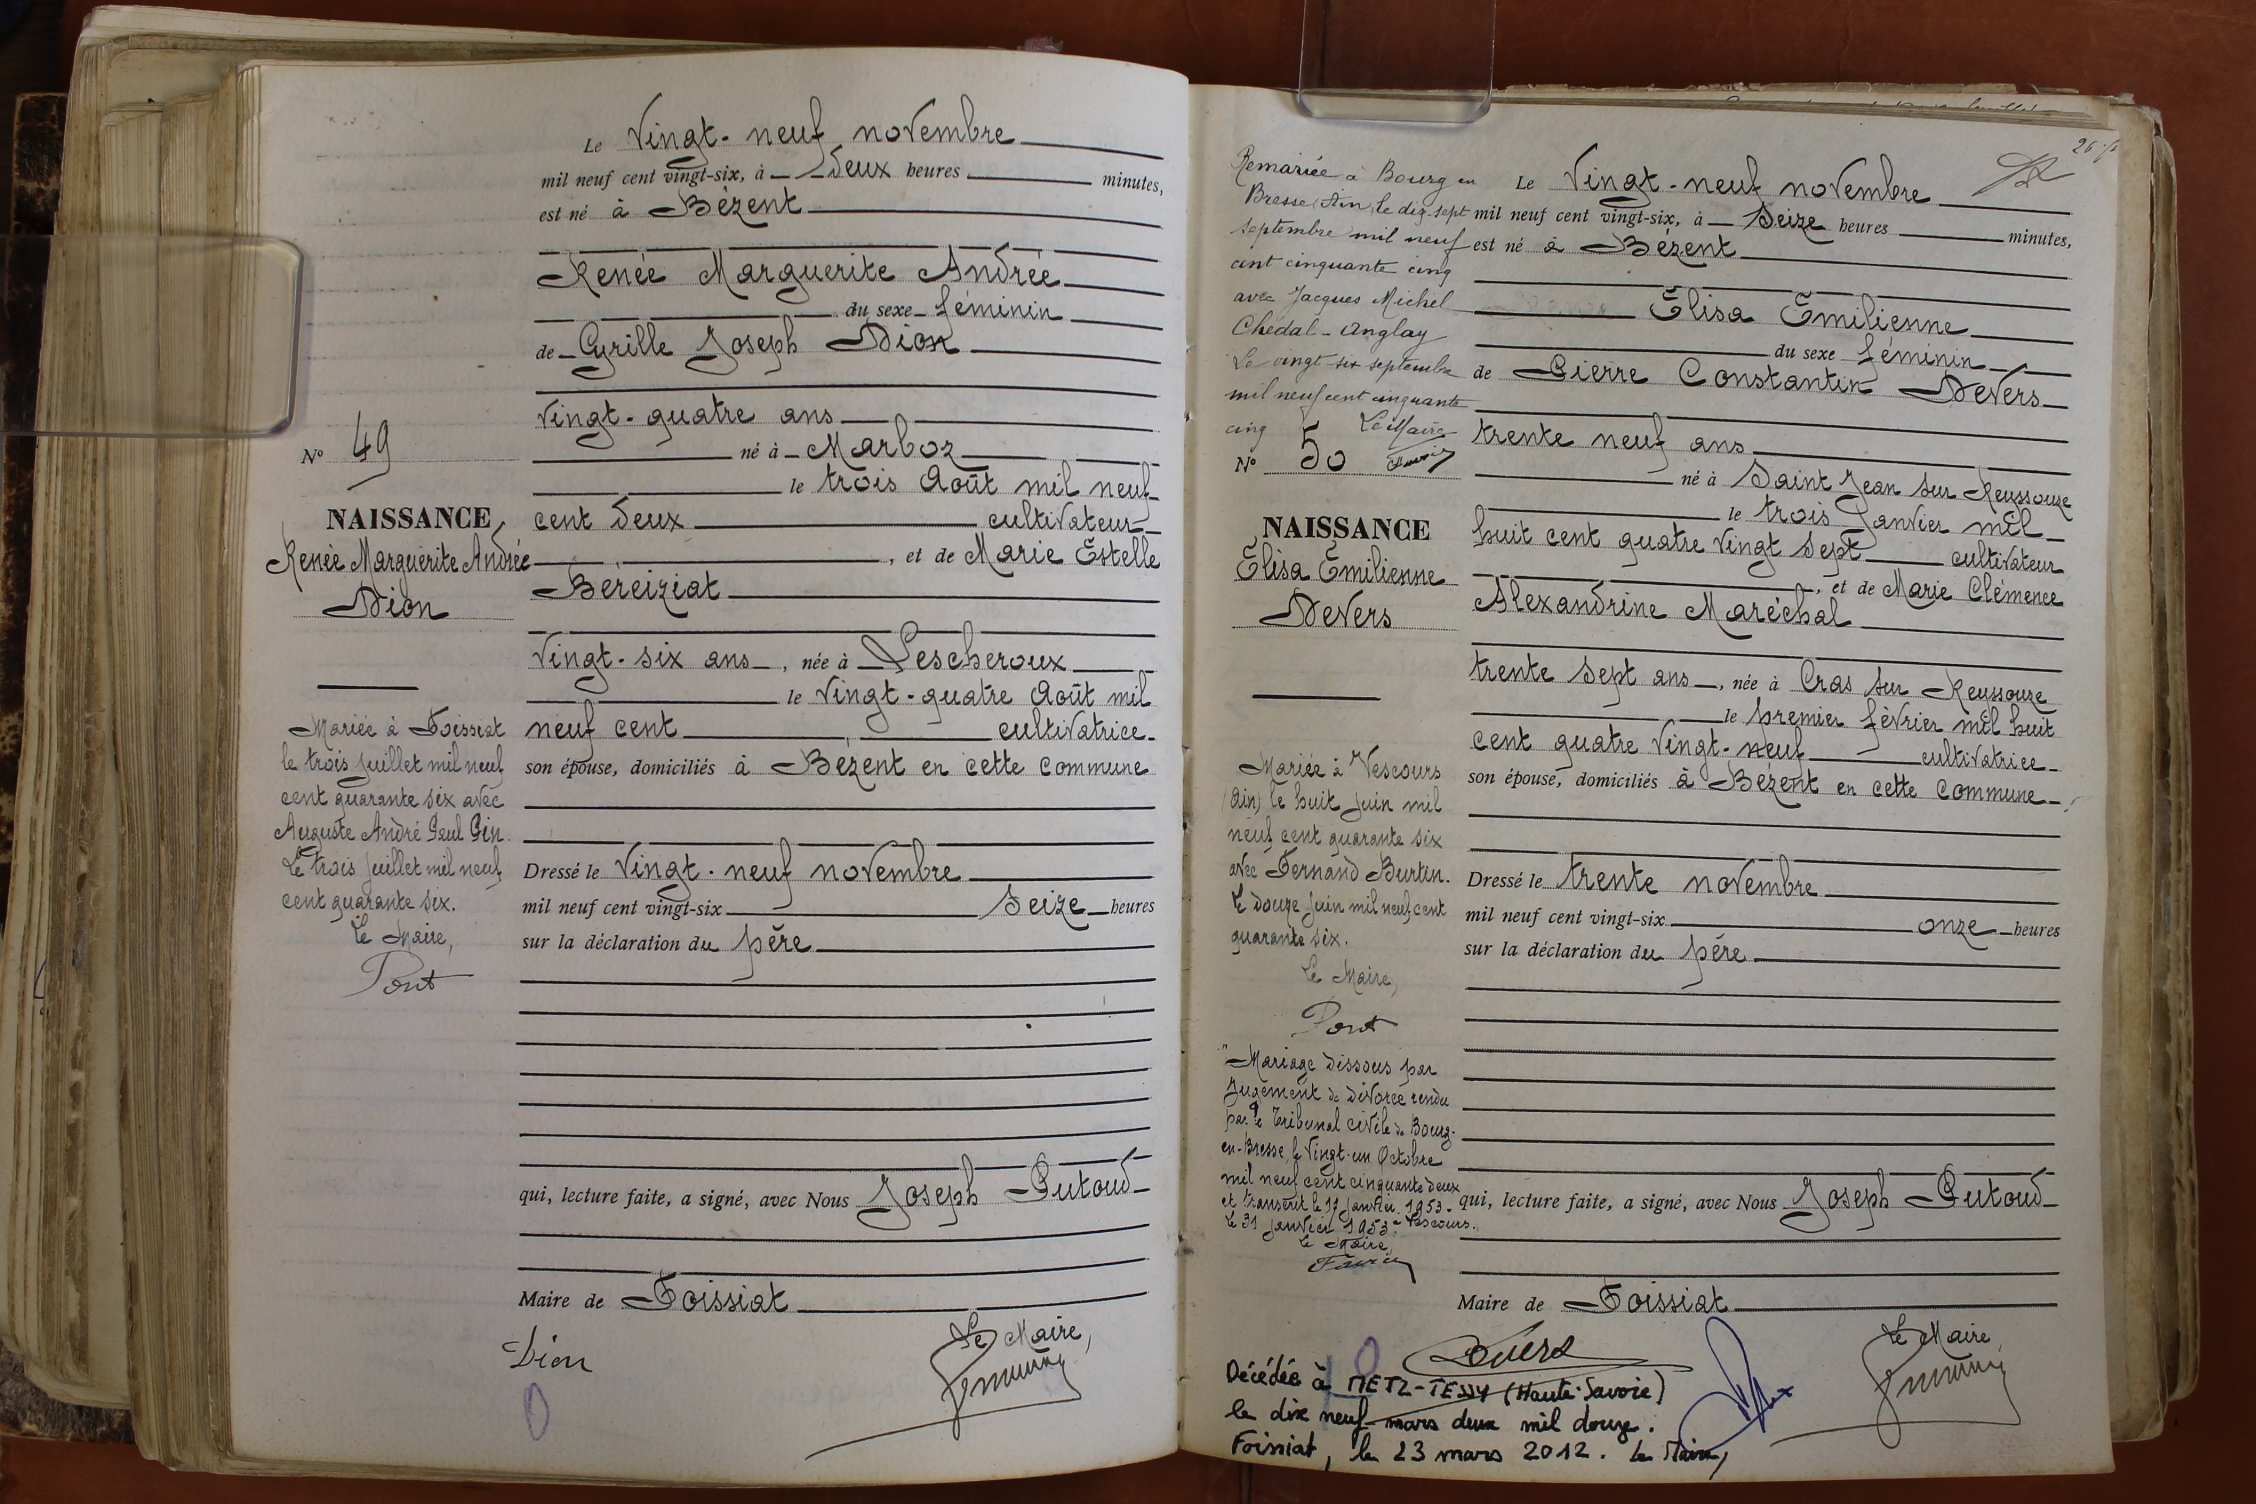 Le Vingt-neuf novembre
mil neuf cent vingt-six, à deux heures minutes,
est né à Bézent
Renée Marguerite Andrée
du sexe féminin
de Cyrille Joseph Dion
vingt-quatre ans
né à Marboz
le trois Août mil neuf
cent deux cultivateur
, et de Marie Estelle
Béreiziat
vingt-six ans, née à Lescheroux
le vingt-quatre Août mil
neuf cent, cultivatrice
son épouse, domiciliés à Bézent en cette commune
Dressé le vingt-neuf novembre
mil neuf cent vingt-six seize heures
sur la déclaration du père
qui, lecture faite, a signé, avec Nous Joseph Putoud
Maire de Foissiat
Le Maire,
Dion
N° 49
NAISSANCE
Renée Marguerite Andrée
Dion
Mariée à Foissiat
le trois juillet mil neuf
cent quarante six avec
Auguste André Paul Pin.
Le trois juillet mil neuf
cent quarante six.
Le Maire,
Pont
26
Remariée à Bourg en
Bresse (Ain) le dix-sept
septembre mil neuf
cent cinquante cinq
avec Jacques Michel
Chedal-Anglay
Le vingt-six septembre
mil neuf cent cinquante
cinq Le Maire
N° 50
NAISSANCE
Élisa Émilienne
Devers
Mariée à Vescours
(Ain) le huit juin mil
neuf cent quarante six
avec Fernand Burtin.
Le douze juin mil neuf cent
quarante six.
Le Maire,
Pont
"Mariage dissous par
Jugement de divorce rendu
par le Tribunal civil de Bourg-
en-Bresse, le vingt-un Octobre
mil neuf cent cinquante deux
et transcrit le 17 janvier 1953 à Vescours.
Le 31 janvier 1953.
Le Maire,
Le Vingt-neuf novembre
mil neuf cent vingt-six, à seize heures minutes,
est né à Bézent
Élisa Émilienne
du sexe féminin
de Pierre Constantin Devers
trente neuf ans
né à Saint Jean sur Reyssouze
le trois Janvier mil
huit cent quatre vingt sept cultivateur
, et de Marie Clémence
Alexandrine Maréchal
trente sept ans, née à Cras sur Reyssouze
le premier février mil huit
cent quatre vingt-neuf cultivatrice
son épouse, domiciliés à Bézent en cette commune
Dressé le trente novembre
mil neuf cent vingt-six onze heures
sur la déclaration du père
qui, lecture faite, a signé, avec Nous Joseph Putoud
Maire de Foissiat
Le Maire
Devers
Décédée à METZ-TESSY (Haute-Savoie)
le dix neuf mars deux mil douze.
Foissiat, le 23 mars 2012. Le Maire,